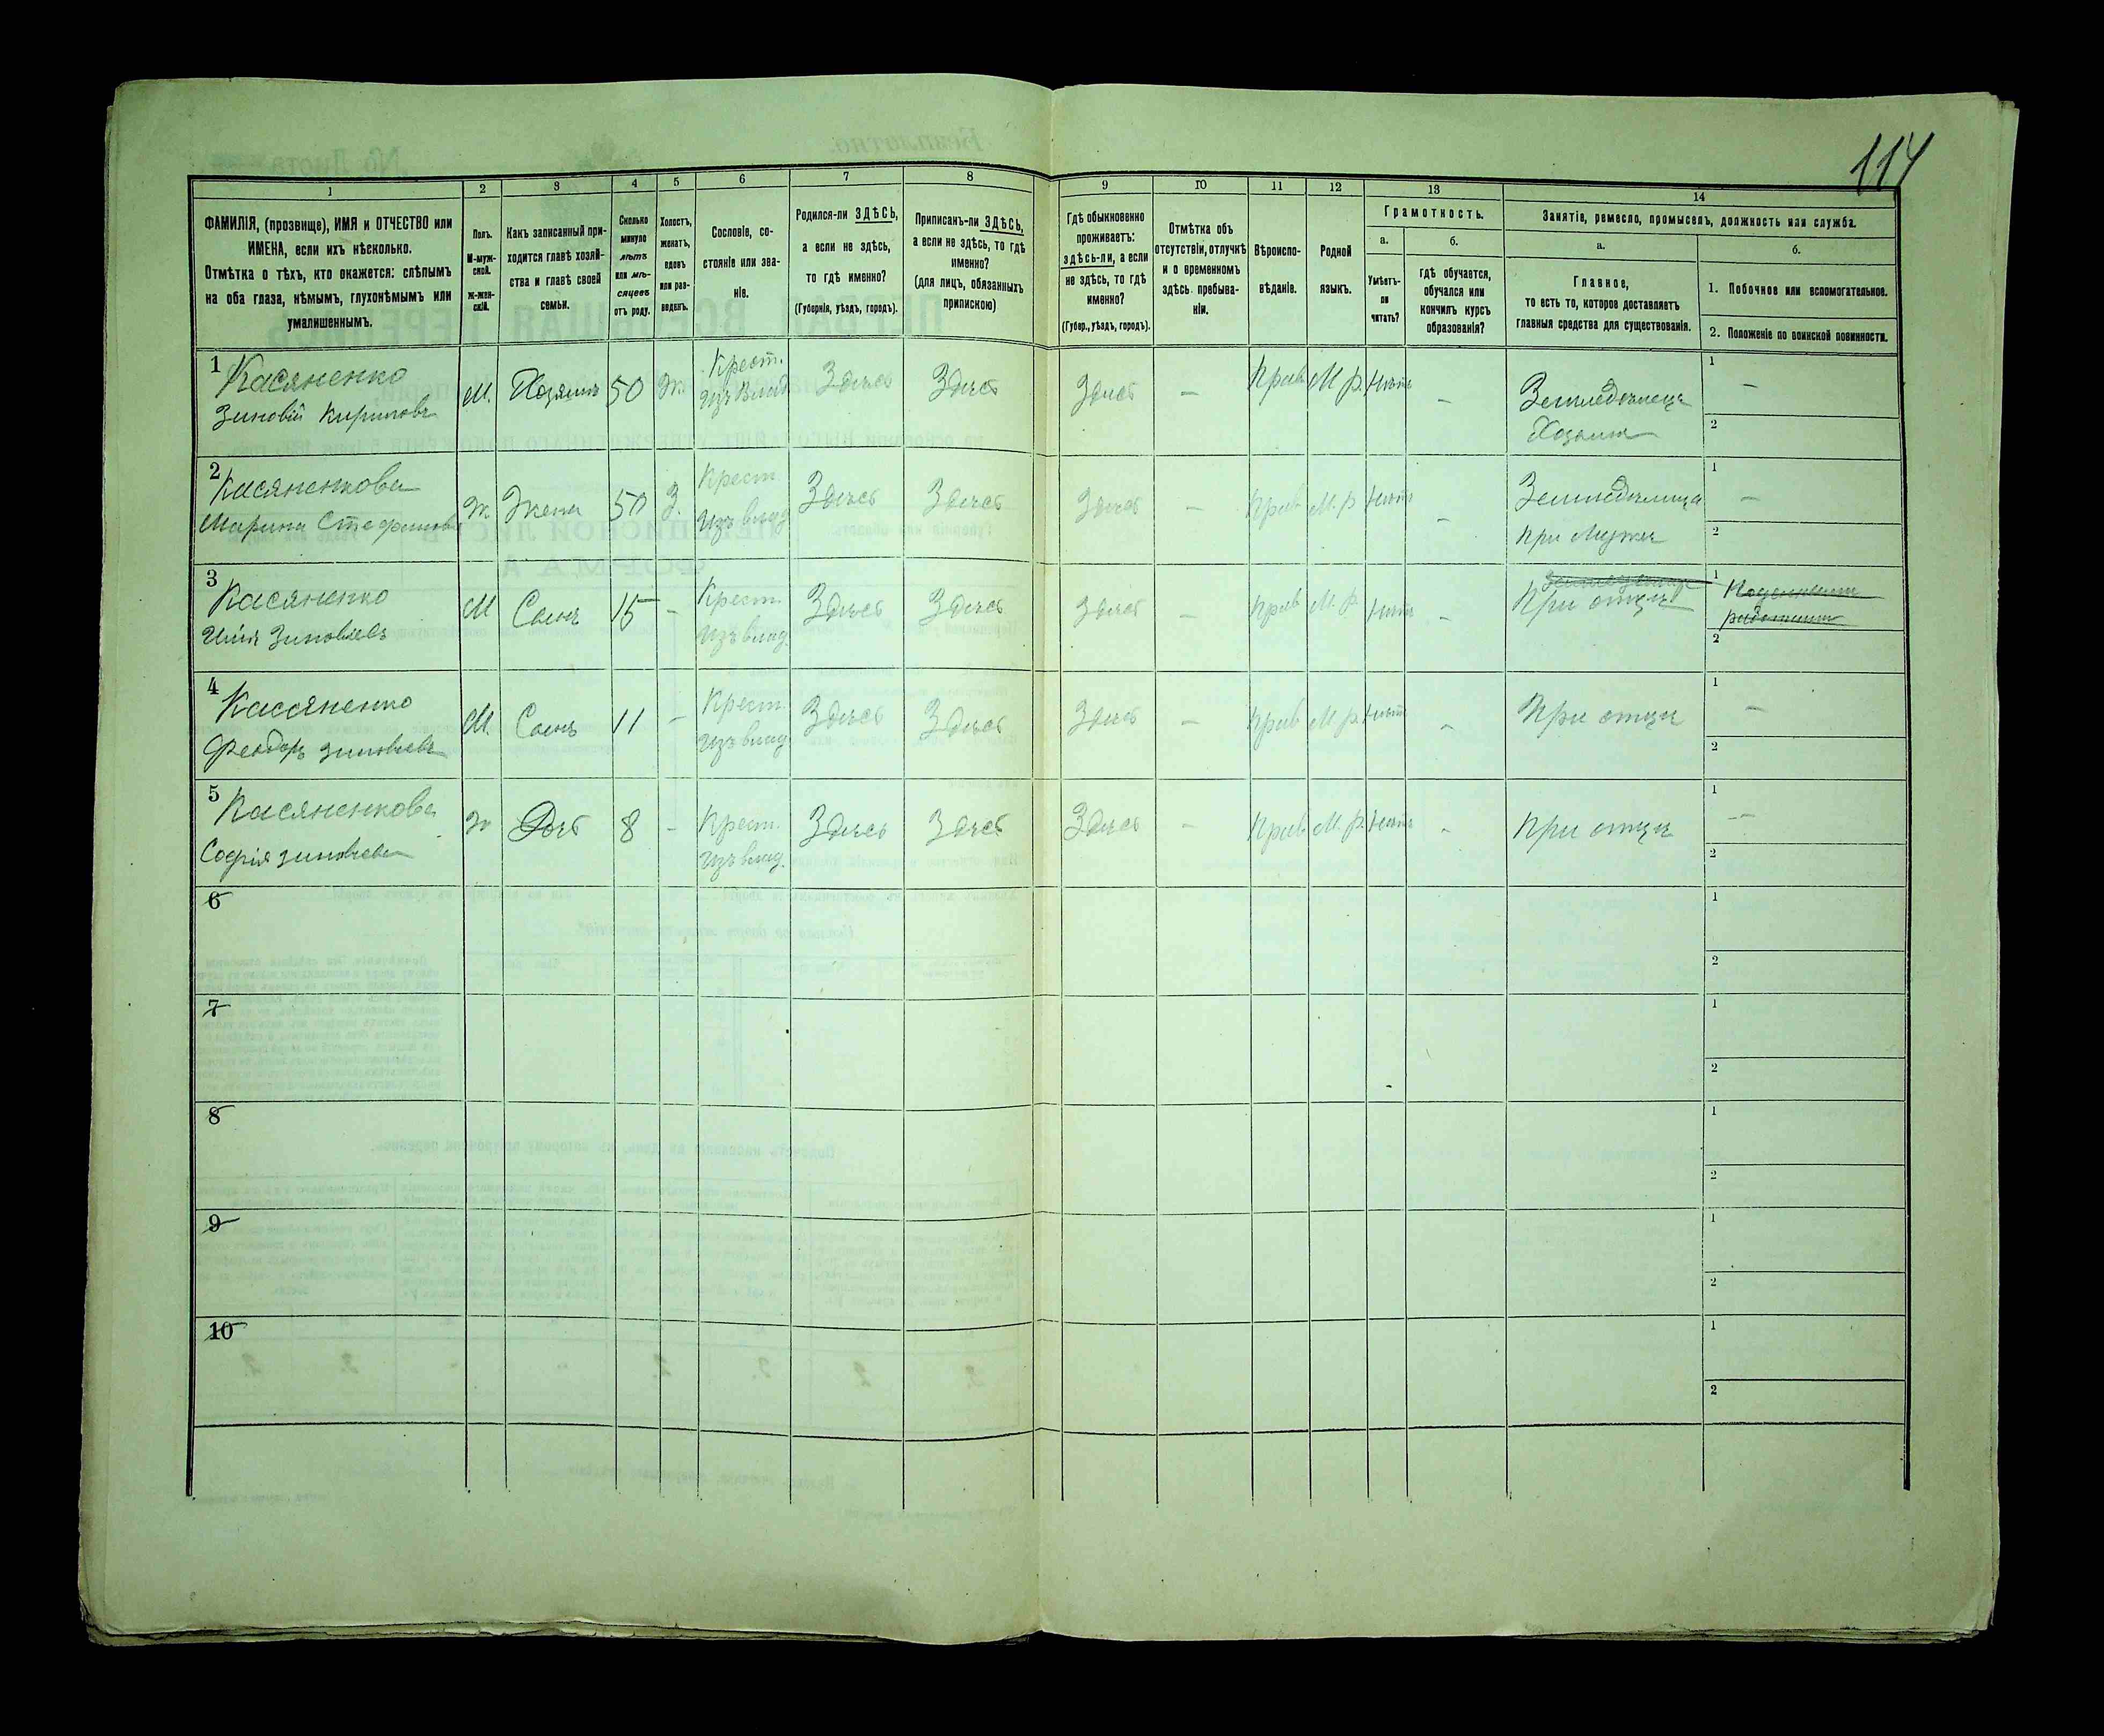 114
1
2
3
4
5
6
7
8
9
10
11
12
13
14
ФАМИЛІЯ, (прозвище), ИМЯ и ОТЧЕСТВО или
ИМЕНА, если ихъ нѣсколько.
Отмѣтка о тѣхъ, кто окажется: слѣпымъ
на оба глаза, нѣмымъ, глухонѣмымъ или
умалишеннымъ.
Полъ.
М-муж-
ской.
Ж-жен-
скій.
Какъ записанный при-
ходится главѣ хозяй-
ства и главѣ своей
семьи.
Сколько
минуло
лѣтъ
или мѣ-
сяцевъ
отъ роду.
Холостъ,
женатъ,
вдовъ
или раз-
веденъ.
Сословіе, со-
стояніе или зва-
ніе.
Родился-ли ЗДѢСЬ,
а если не здѣсь,
то гдѣ именно?
(Губернія, уѣздъ, городъ).
Приписанъ-ли ЗДѢСЬ,
а если не здѣсь, то гдѣ
именно?
(для лицъ, обязанныхъ
припискою)
Гдѣ обыкновенно
проживаетъ:
здѣсь-ли, а если
не здѣсь, то гдѣ
именно?
(Губер., уѣздъ, городъ).
Отмѣтка объ
отсутствіи, отлучкѣ
и о временномъ
здѣсь пребыва-
ніи.
Вѣроиспо-
вѣданіе.
Родной
языкъ.
Грамотность.
а.
Умѣетъ-
ли
читать?
б.
гдѣ обучается,
обучался или
кончилъ курсъ
образованія?
Занятіе, ремесло, промыселъ, должность или служба.
а.
Главное,
то есть то, которое доставляетъ
главныя средства для существованія.
б.
1. Побочное или вспомогательное.
2. Положеніе по воинской повинности.
1 Касяненко
Зиновій Кириловъ
М. Хозяинъ 50 Ж. Крест. изъ влад. Здѣсь Здѣсь Здѣсь — Прав. М. р. Нѣтъ — Земледѣлецъ
Хозяинъ
1 —
2
2 Касяненкова
Марина Стефанова
Ж. Жена 50 З. Крест. изъ влад. Здѣсь Здѣсь Здѣсь — Прав. М. р. Нѣтъ — Земледѣлица
при мужѣ
1 —
2
3 Касяненко
Илія Зиновіевъ
М Сынъ 15 — Крест. изъ влад. Здѣсь Здѣсь Здѣсь — Прав. М. р. Нѣтъ
При отцѣ
1
2
4 Касяненко
Феодоръ Зиновіевъ
М. Сынъ 11 — Крест. изъ влад. Здѣсь Здѣсь Здѣсь — Прав. М. р. Нѣтъ — При отцѣ
1 —
2
5 Касяненкова
Софія Зиновіева
Ж Дочь 8 — Крест. изъ влад. Здѣсь Здѣсь Здѣсь — Прав. М. р. Нѣтъ — При отцѣ
1 —
2
6
1
2
7
1
2
8
1
2
9
1
2
10
1
2